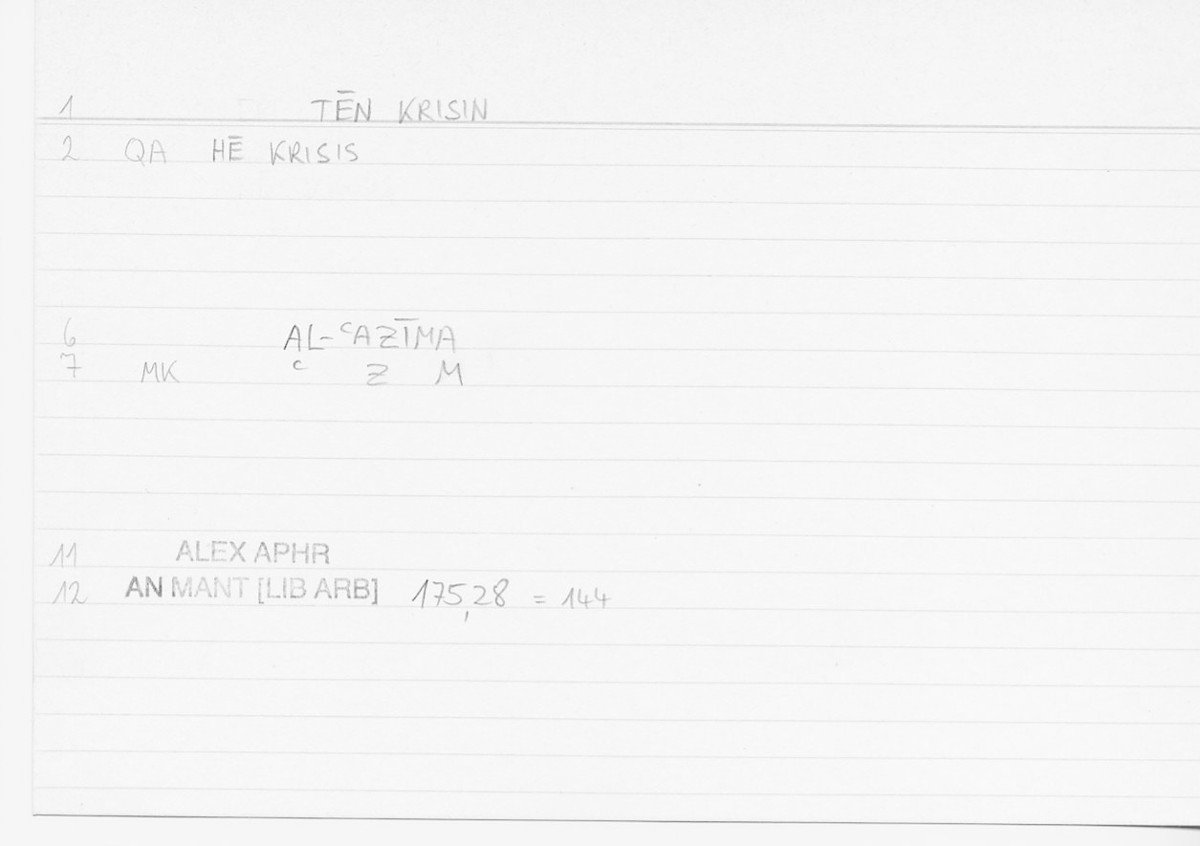 1 TĒN KRISIN
2 QA HĒ KRISIS
6 AL-ᶜAZĪMA
7 MK ᶜ Z M
11 ALEX APHR
12 AN MANT [LIB ARB] 175,28 = 144